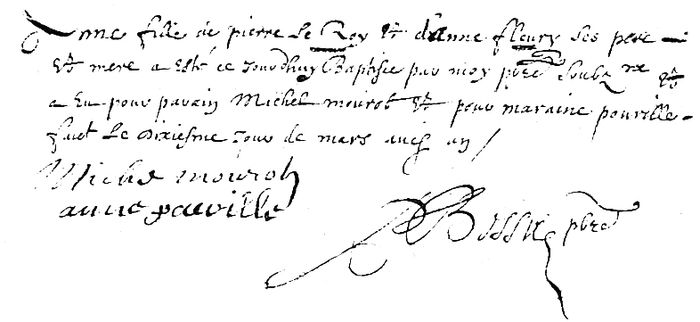 Anne fille de pierre Le Roy Et d'anne fleury ses pere
Et mere a Esté ce Jourdhuy Baptisée par moy pbre soubzne Et
a Eu pour parain Michel mourot Et pour maraine pouville
faict Le dixiesme Jour de mars audict an
Michel mourot
anne pouville
Bossu pbre